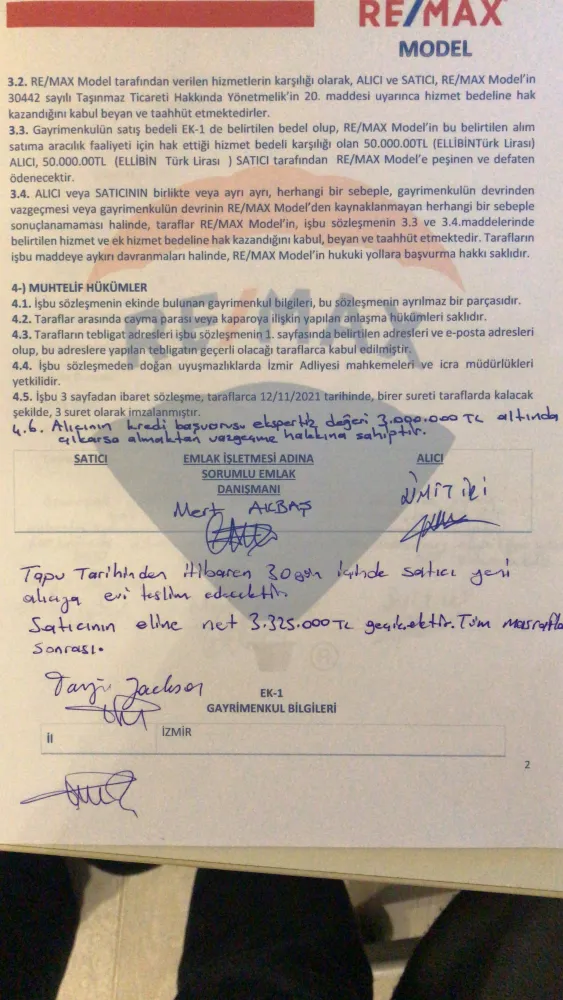 RE/MAX
MODEL
3.2. RE/MAX Model tarafından verilen hizmetlerin karşılığı olarak, ALICI ve SATICI, RE/MAX Model'in
30442 sayılı Taşınmaz Ticareti Hakkında Yönetmelik'in 20. maddesi uyarınca hizmet bedeline hak
kazandığını kabul beyan ve taahhüt etmektedirler.
3.3. Gayrimenkulün satış bedeli EK-1 de belirtilen bedel olup, RE/MAX Model'in bu belirtilen alım
satıma aracılık faaliyeti için hak ettiği hizmet bedeli karşılığı olan 50.000.00TL (ELLİBİNTürk Lirası)
ALICI, 50.000.00TL (ELLİBİN Türk Lirası ) SATICI tarafından RE/MAX Model'e peşinen ve defaten
ödenecektir.
3.4. ALICI veya SATICININ birlikte veya ayrı ayrı, herhangi bir sebeple, gayrimenkulün devrinden
vazgeçmesi veya gayrimenkulün devrinin RE/MAX Model'den kaynaklanmayan herhangi bir sebeple
sonuçlanamaması halinde, taraflar RE/MAX Model'in, işbu sözleşmenin 3.3 ve 3.4.maddelerinde
belirtilen hizmet ve ek hizmet bedeline hak kazandığını kabul, beyan ve taahhüt etmektedir. Tarafların
işbu maddeye aykırı davranmaları halinde, RE/MAX Model'in hukuki yollara başvurma hakkı saklıdır.
4-) MUHTELİF HÜKÜMLER
4.1. İşbu sözleşmenin ekinde bulunan gayrimenkul bilgileri, bu sözleşmenin ayrılmaz bir parçasıdır.
4.2. Taraflar arasında cayma parası veya kaparoya ilişkin yapılan anlaşma hükümleri saklıdır.
4.3. Tarafların tebligat adresleri işbu sözleşmenin 1. sayfasında belirtilen adresleri ve e-posta adresleri
olup, bu adreslere yapılan tebligatın geçerli olacağı taraflarca kabul edilmiştir.
4.4. İşbu sözleşmeden doğan uyuşmazlıklarda İzmir Adliyesi mahkemeleri ve icra müdürlükleri
yetkilidir.
4.5. İşbu 3 sayfadan ibaret sözleşme, taraflarca 12/11/2021 tarihinde, birer sureti taraflarda kalacak
şekilde, 3 suret olarak imzalanmıştır.
4.6. Alıcının kredi başvurusu ekspertiz değeri 3.000.000 TL altında
çıkarsa almaktan vazgeçme hakkına sahiptir.
SATICI EMLAK İŞLETMESİ ADINA ALICI
SORUMLU EMLAK
DANIŞMANI
Mert AKBAŞ
ÜMİT İKİ
Tapu Tarihinden itibaren 30 gün içinde satıcı yeni
alıcıya evi teslim edecektir.
Satıcının eline net 3.325.000 TL geçicektir. Tüm masrafla
sonrası.
Jackson
EK-1
GAYRİMENKUL BİLGİLERİ
İl İZMİR
2